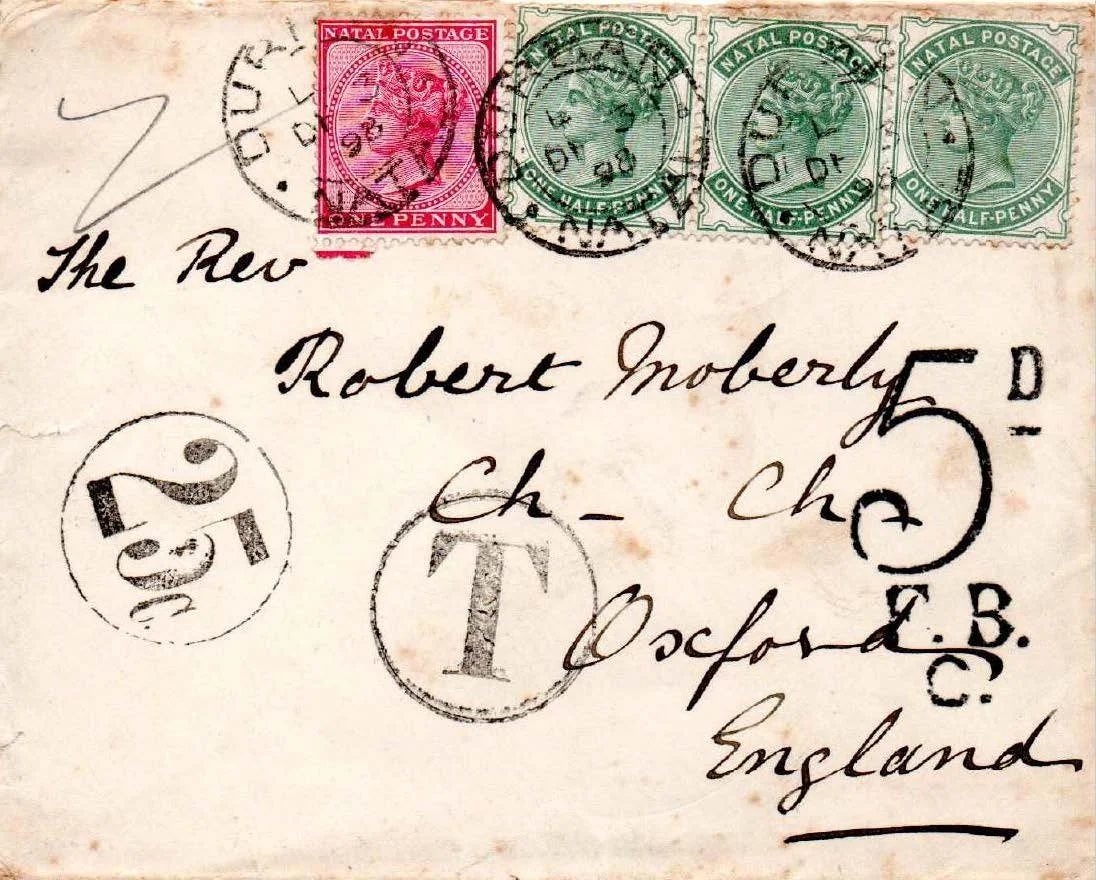 NATAL POSTAGE
ONE PENNY
NATAL POSTAGE
ONE HALF-PENNY
NATAL POSTAGE
ONE HALF-PENNY
NATAL POSTAGE
ONE HALF-PENNY
DURBAN
98
NATAL
DURBAN
DE 3
98
NATAL
DUR
NATAL
The Rev
Robert Moberly
Ch - Ch
Oxford
England
25 c
T
5 D
F.B.
C.